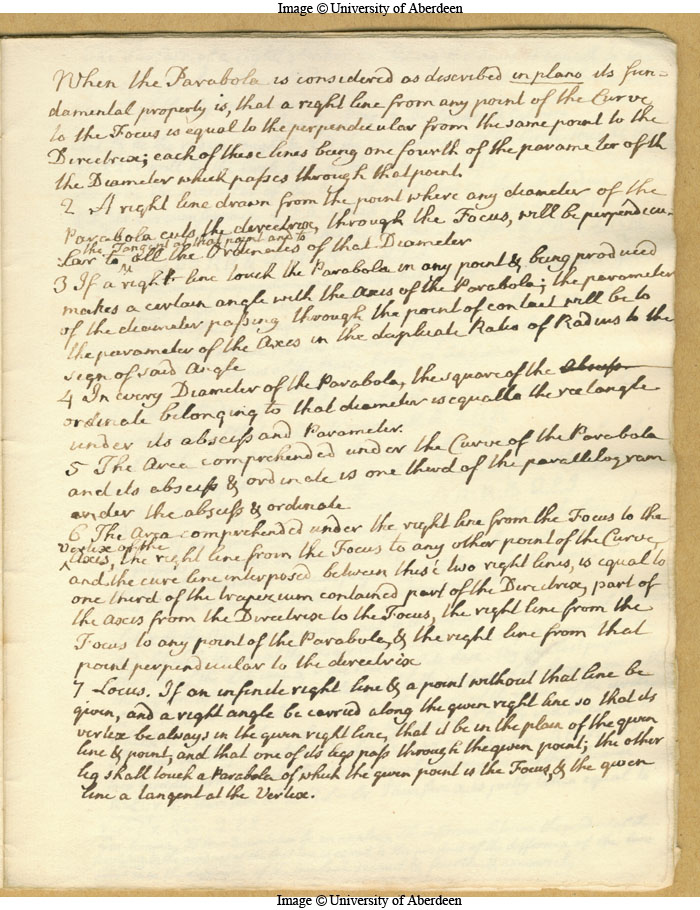 Image © University of Aberdeen
When the Parabola is considered as described in plano its fun=
damental property is, that a right line from any point of the Curve
to the Focus is equal to the perpendicular from the same point to the
Directrix; each of these lines being one fourth of the parameter of th
the Diameter which passes through that point.
2 A right line drawn from the point where any diameter of the
Parabola cuts the directrix, through the Focus, will be perpendicu-
the Tangent at that point and to
lar to ^ all the Ordinates of that Diameter
3 If a right line touch the Parabola in any point & being produced
makes a certain angle with the axis of the Parabola; the parameter
of the diameter passing through the point of contact will be to
the parameter of the Axis in the duplicate Ratio of Radius to the
sign of said Angle
4 In every Diameter of the Parabola, the square of the absciss
ordinate belonging to that diameter is equal to the rectangle
under its absciss and Parameter.
5 The Area comprehended under the Curve of the Parabola
and its absciss & ordinate is one third of the parallelogram
under the absciss & ordinate
6 The Area comprehended under the right line from the Focus to the
Vertix of the
^ Axis, the right line from the Focus to any other point of the Curve,
and the cure line interposed between these two right lines, is equal to
one third of the trapezium contained part of the Directrix, part of
the axis from the Directrix to the Focus, the right line from the
Focus to any point of the Parabola, & the right line from that
point perpendicular to the directrix
7 Locus. If an infinite right line & a point without that line be
given, and a right angle be carried along the given right line so that its
vertix be always in the given right line, that it be in the plain of the given
line & point, and that one of its legs pass through the given point; the other
leg shall touch a Parabola of which the given point is the Focus, & the given
line a tangent at the Vertix.
Image © University of Aberdeen